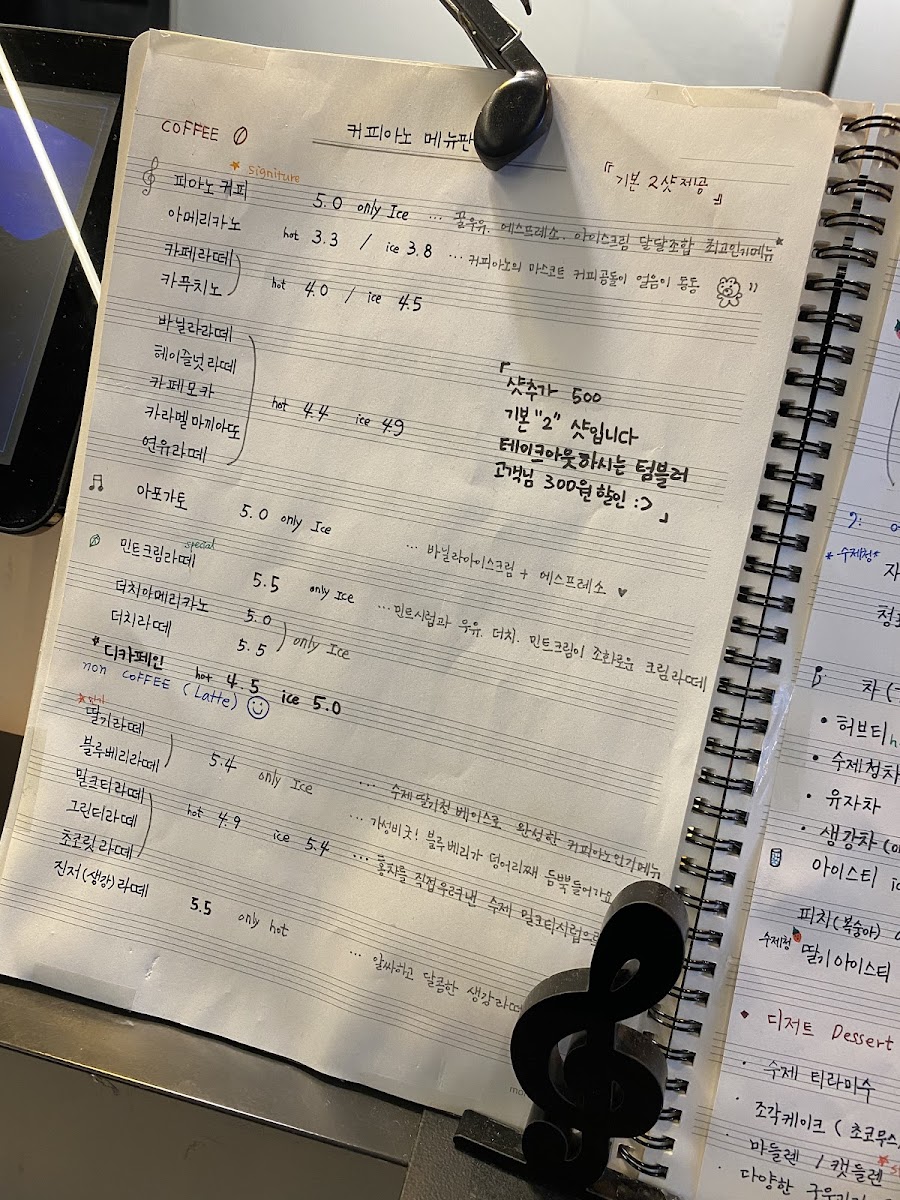 COFFEE
커피아노 메뉴판
『기본 2샷 제공』
signiture
피아노 커피 5.0 only Ice ... 꿀우유, 에스프레소, 아이스크림 달달조합 최고인기메뉴
아메리카노 hot 3.3 / ice 3.8 ... 커피아노의 마스코트 커피곰돌이 얼음이 동동
카페라떼
카푸치노 hot 4.0 / ice 4.5
바닐라라떼
헤이즐넛라떼
카페모카 hot 4.4 ice 4.9
카라멜마끼아또
연유라떼
『샷추가 500
기본 "2" 샷입니다
테이크아웃하시는 텀블러
고객님 300원 할인 :>』
아포가토 5.0 only Ice ... 바닐라아이스크림 + 에스프레소 ♥
special
민트크림라떼 5.5 only Ice ... 민트시럽과 우유, 더치, 민트크림이 조화로운 크림라떼
더치아메리카노 5.0
더치라떼 5.5 only Ice
* 디카페인 hot 4.5 ice 5.0
non COFFEE (Latte)
*인기
딸기라떼 ... 수제딸기청 베이스로 완성한 커피아노인기메뉴
블루베리라떼 5.4 only Ice ... 가성비굿! 블루베리가 덩어리째 듬뿍들어가요
밀크티라떼 ... 홍차를 직접우려낸 수제 밀크티시럽으로
그린티라떼 hot 4.9 ice 5.4
초코릿라떼
진저(생강)라떼 5.5 only hot ... 알싸하고 달콤한 생강라떼
*수제청*
자
청포
차 (
• 허브티
• 수제청차
• 유자차
• 생강차
아이스티
피치(복숭아)
수제청 딸기아이스티
디저트 Dessert
· 수제 티라미수
· 조각케이크 ( 초코무스,
· 마들렌 / 캣들렌
· 다양한